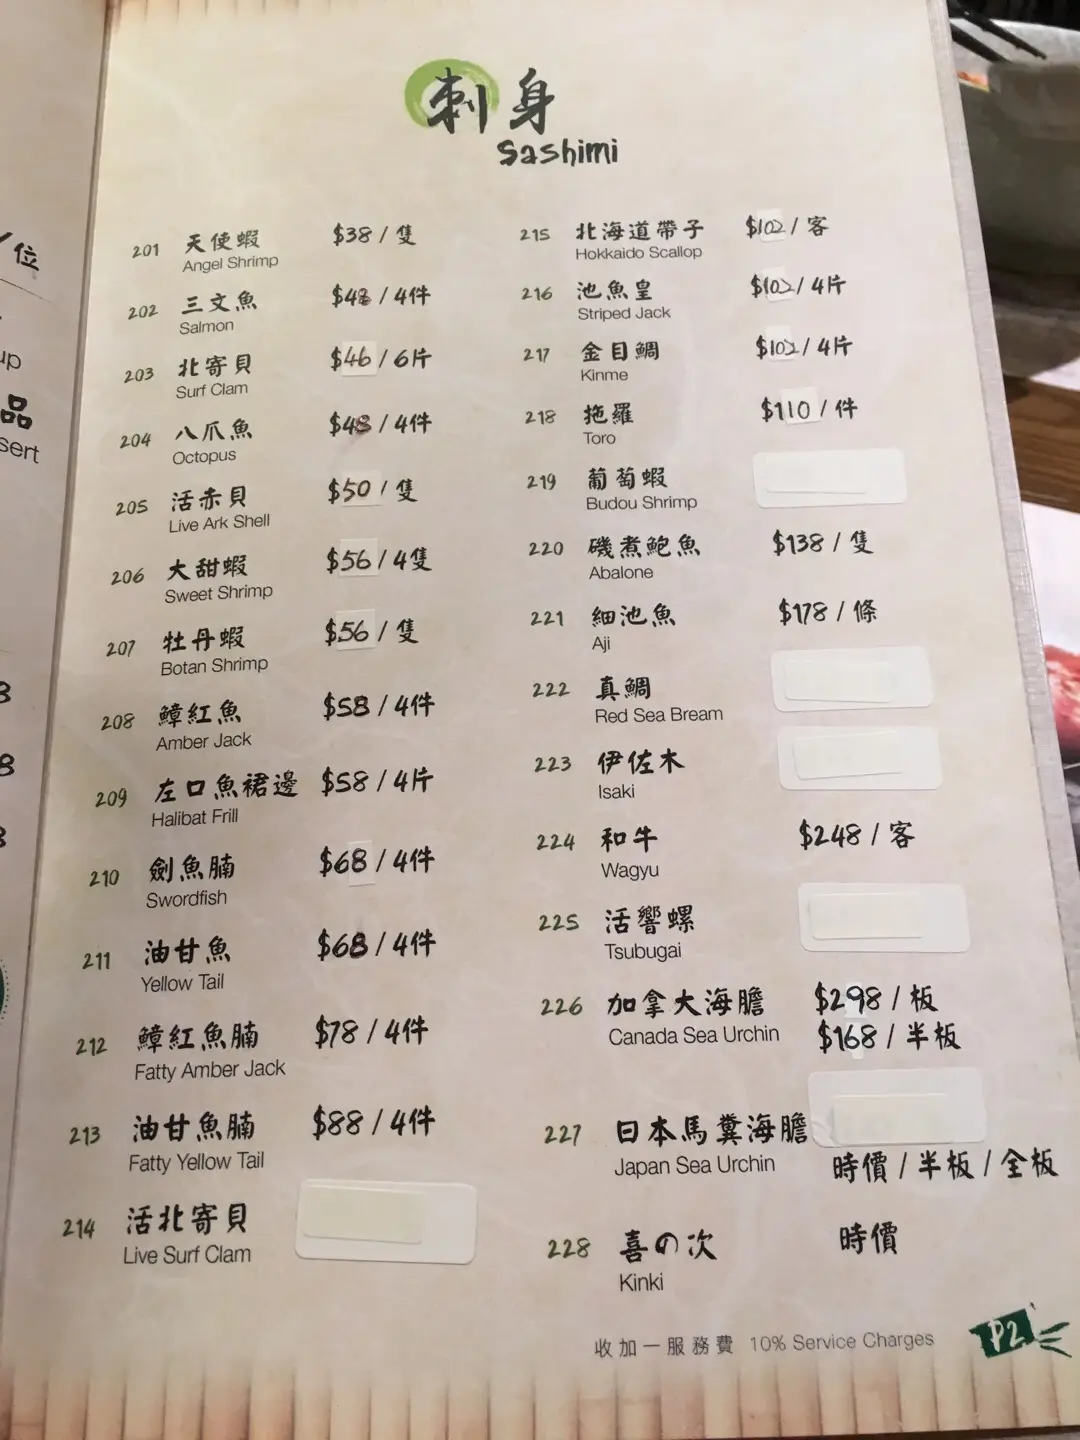 刺身
Sashimi
201 天使蝦 $38 / 隻
Angel Shrimp
202 三文魚 $48 / 4件
Salmon
203 北寄貝 $46 / 6片
Surf Clam
204 八爪魚 $48 / 4件
Octopus
205 活赤貝 $50 / 隻
Live Ark Shell
206 大甜蝦 $56 / 4隻
Sweet Shrimp
207 牡丹蝦 $56 / 隻
Botan Shrimp
208 鱆紅魚 $58 / 4件
Amber Jack
209 左口魚裙邊 $58 / 4片
Halibat Frill
210 劍魚腩 $68 / 4件
Swordfish
211 油甘魚 $68 / 4件
Yellow Tail
212 鱆紅魚腩 $78 / 4件
Fatty Amber Jack
213 油甘魚腩 $88 / 4件
Fatty Yellow Tail
214 活北寄貝
Live Surf Clam
215 北海道帶子 $102 / 客
Hokkaido Scallop
216 池魚皇 $102 / 4片
Striped Jack
217 金目鯛 $102 / 4片
Kinme
218 拖羅 $110 / 件
Toro
219 葡萄蝦
Budou Shrimp
220 磯煮鮑魚 $138 / 隻
Abalone
221 細池魚 $178 / 條
Aji
222 真鯛
Red Sea Bream
223 伊佐木
Isaki
224 和牛 $248 / 客
Wagyu
225 活響螺
Tsubugai
226 加拿大海膽 $298 / 板
Canada Sea Urchin $168 / 半板
227 日本馬糞海膽
Japan Sea Urchin 時價 / 半板 / 全板
228 喜の次 時價
Kinki
收加一服務費 10% Service Charges
P2
/位
up
品
sert
8
8
8